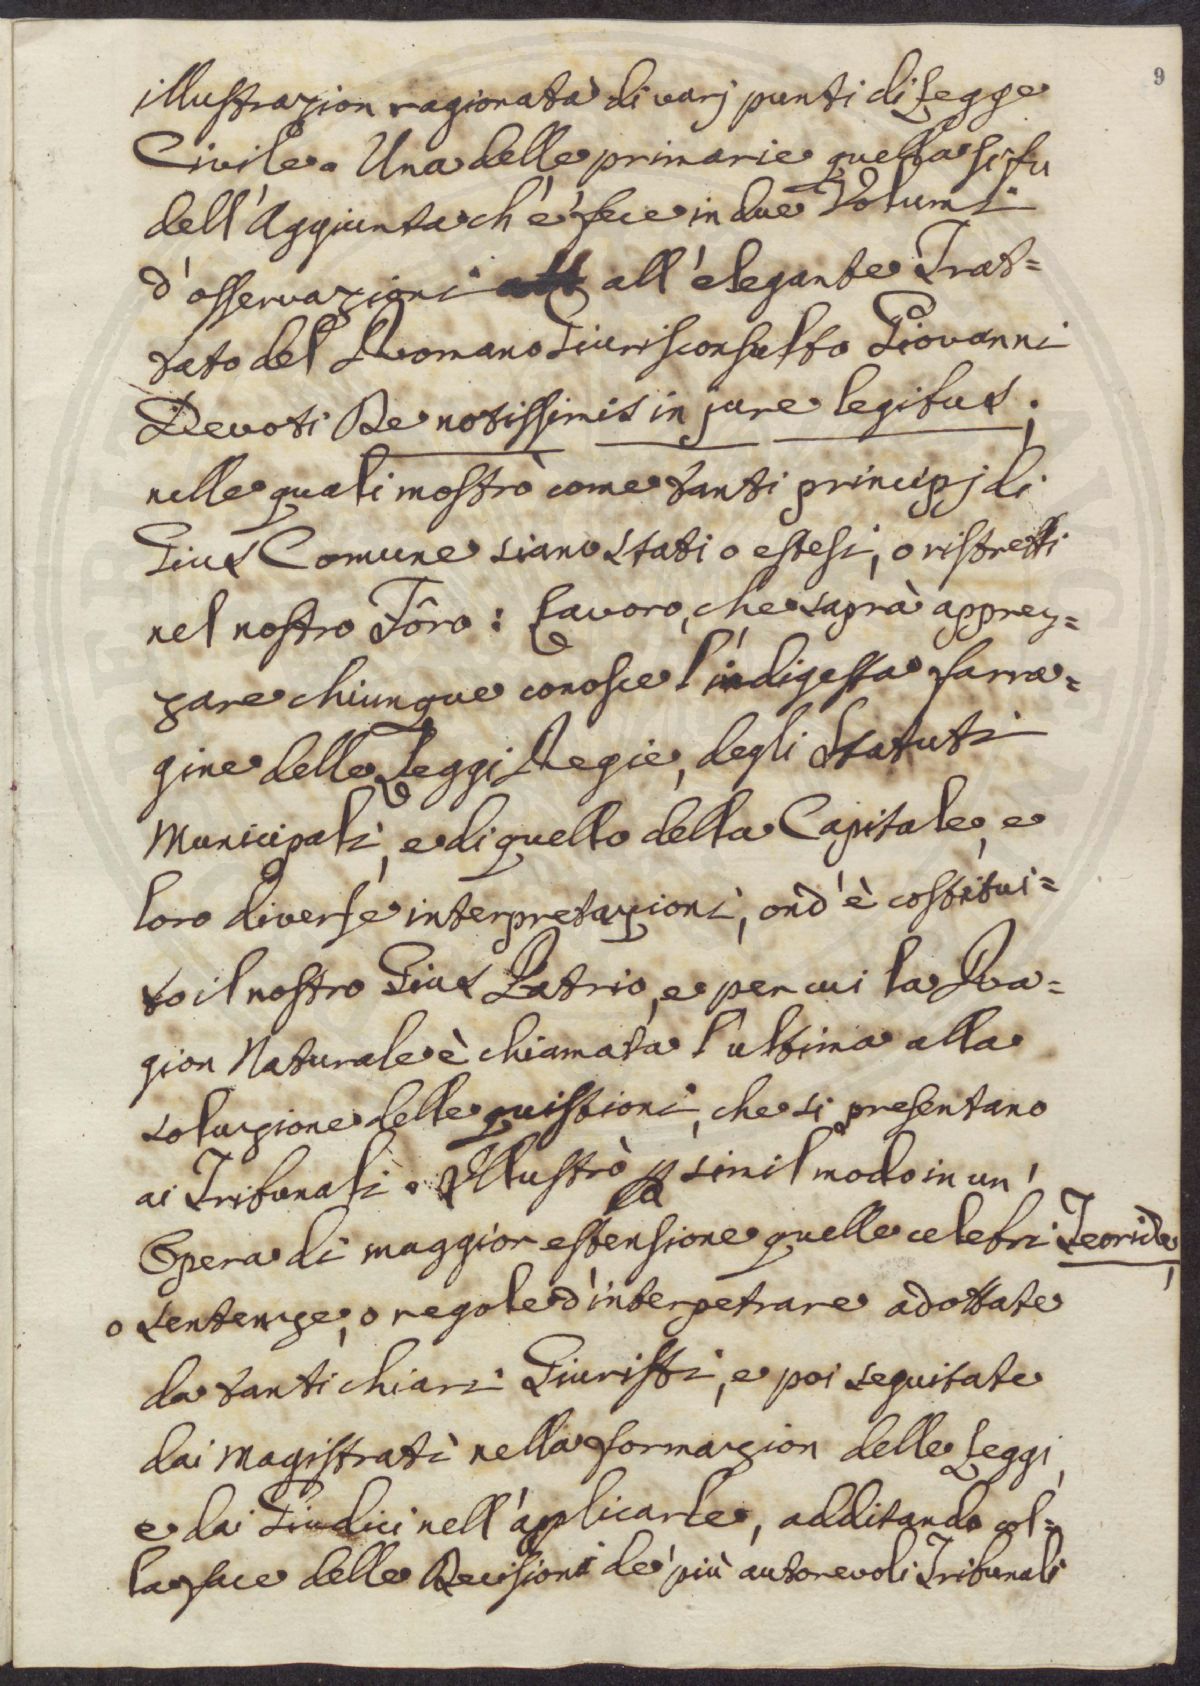 9
illustrazion ragionata di varj punti di Legge
Civile. Una delle primarie quella si fu
dell'Aggiunta ch' e' fece in due Volumi
d'osservazioni all'elegante Trat=
tato del Romano Giurisconsulto Giovanni
Devoti De notissimis in jure legibus;
nelle quali mostrò come tanti principj di
Gius Comune siano stati o estesi, o ristretti
nel nostro Fôro: Lavoro, che saprà apprez=
zare chiunque conosce l'indigesta farra=
gine delle Leggi Regie, degli Statuti
Municipali, e di quello della Capitale, e
loro diverse interpretazioni, ond'è costitui=
to il nostro Gius Patrio, e per cui la Ra=
gion Naturale è chiamata l'ultima alla
soluzione delle quistioni, che si presentano
ai Tribunali. Illustrò a simil modo in un'
Opera di maggior estensione quelle celebri Teoriche,
o sentenze, o regole d'interpetrare adottate
da tanti chiari Giuristi, e poi seguitate
dai Magistrati nella formazion delle Leggi,
e dai Giudici nell'applicarle, additando col=
la face delle Decisioni de' più autorevoli Tribunali